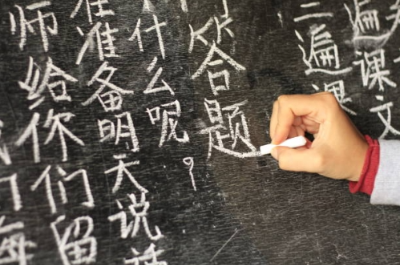 师给你们留
准备明天说话
什么呢?
答题
二遍课
遍课文